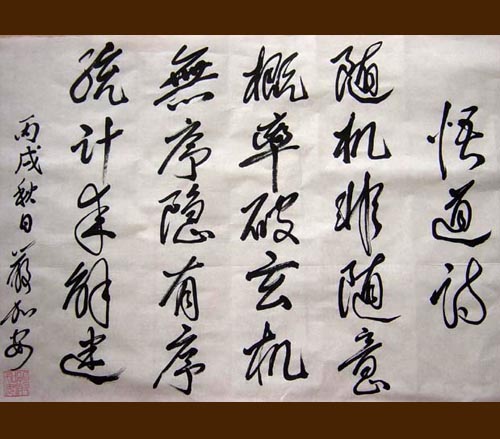 悟道诗
随机非随意
概率破玄机
無序隐有序
统计来解迷
丙戌秋日严加安